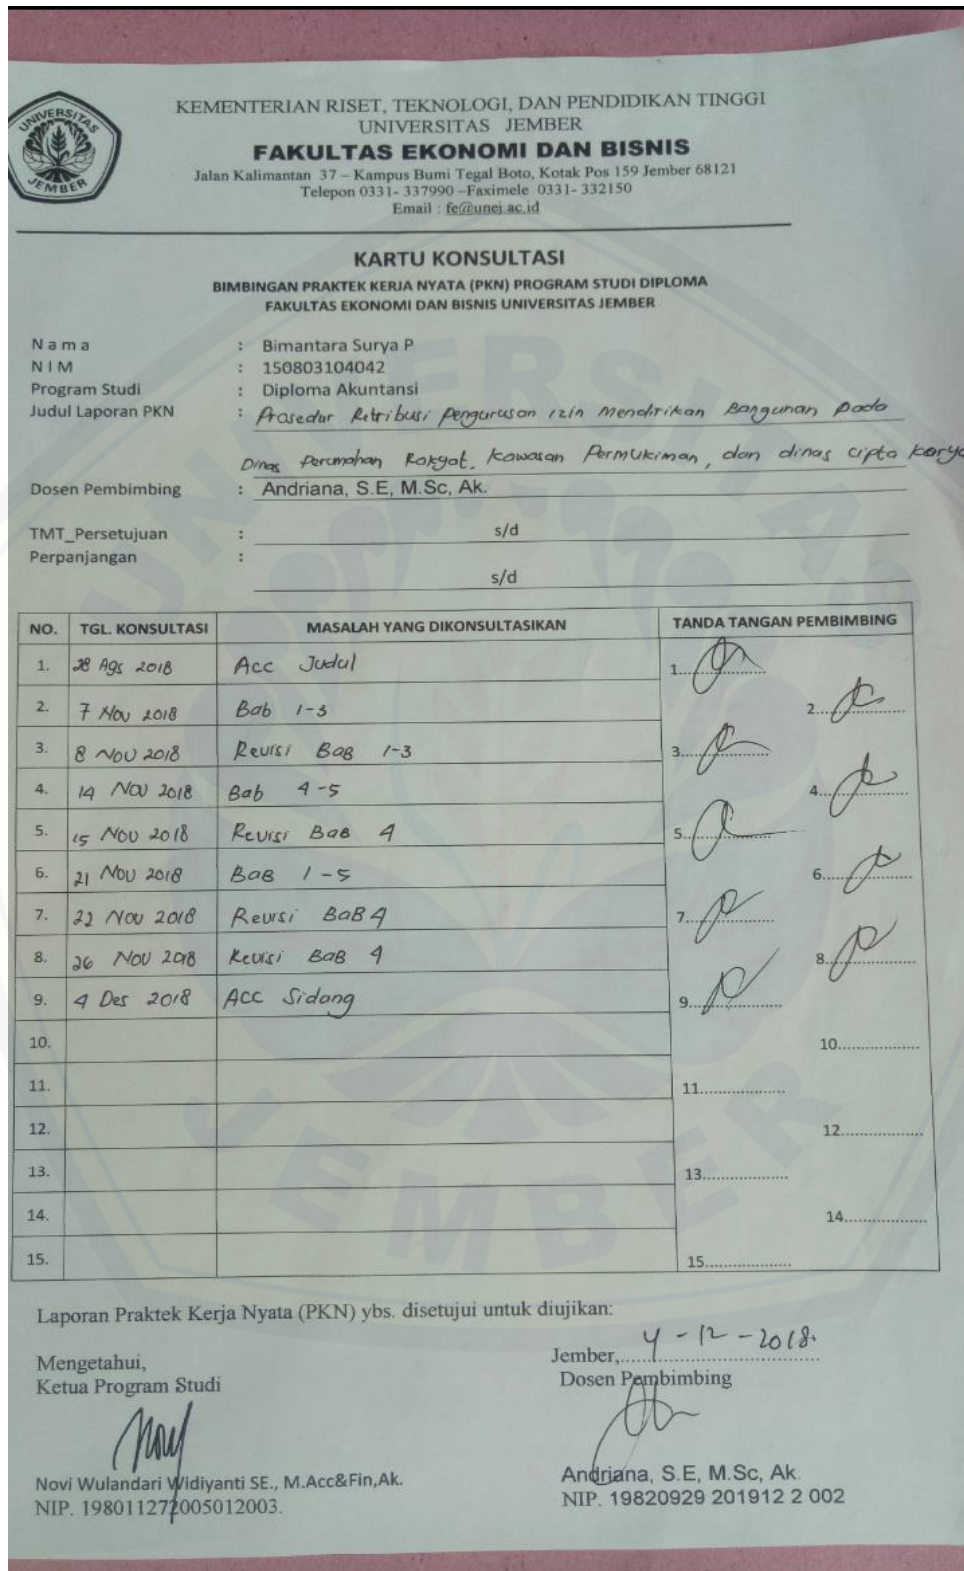 UNIVERSITAS
JEMBER
KEMENTERIAN RISET, TEKNOLOGI, DAN PENDIDIKAN TINGGI
UNIVERSITAS JEMBER
FAKULTAS EKONOMI DAN BISNIS
Jalan Kalimantan 37 – Kampus Bumi Tegal Boto, Kotak Pos 159 Jember 68121
Telepon 0331- 337990 –Faximele 0331- 332150
Email : fe@unej.ac.id
KARTU KONSULTASI
BIMBINGAN PRAKTEK KERJA NYATA (PKN) PROGRAM STUDI DIPLOMA
FAKULTAS EKONOMI DAN BISNIS UNIVERSITAS JEMBER
N a m a : Bimantara Surya P
N I M : 150803104042
Program Studi : Diploma Akuntansi
Judul Laporan PKN : Prosedur Retribusi Pengurusan Izin Mendirikan Bangunan pada
Dinas Perumahan Rakyat, Kawasan Permukiman, dan dinas cipta karya
Dosen Pembimbing : Andriana, S.E, M.Sc, Ak.
TMT_Persetujuan : s/d
Perpanjangan :
s/d
NO. TGL. KONSULTASI MASALAH YANG DIKONSULTASIKAN TANDA TANGAN PEMBIMBING
1. 28 Ags 2018 Acc Judul 1...
2. 7 Nov 2018 Bab 1-3 2...
3. 8 Nov 2018 Revisi Bab 1-3 3...
4. 14 Nov 2018 Bab 4-5 4...
5. 15 Nov 2018 Revisi Bab 4 5...
6. 21 Nov 2018 Bab 1-5 6...
7. 22 Nov 2018 Revisi Bab 4 7...
8. 26 Nov 2018 Revisi Bab 4 8...
9. 4 Des 2018 Acc Sidang 9...
10. 10...
11. 11...
12. 12...
13. 13...
14. 14...
15. 15...
Laporan Praktek Kerja Nyata (PKN) ybs. disetujui untuk diujikan:
Jember, 4 - 12 - 2018.
Mengetahui, Dosen Pembimbing
Ketua Program Studi
Novi Wulandari Widiyanti SE., M.Acc&Fin,Ak. Andriana, S.E, M.Sc, Ak.
NIP. 198011272005012003. NIP. 19820929 201912 2 002
UNIVERSITAS JEMBER